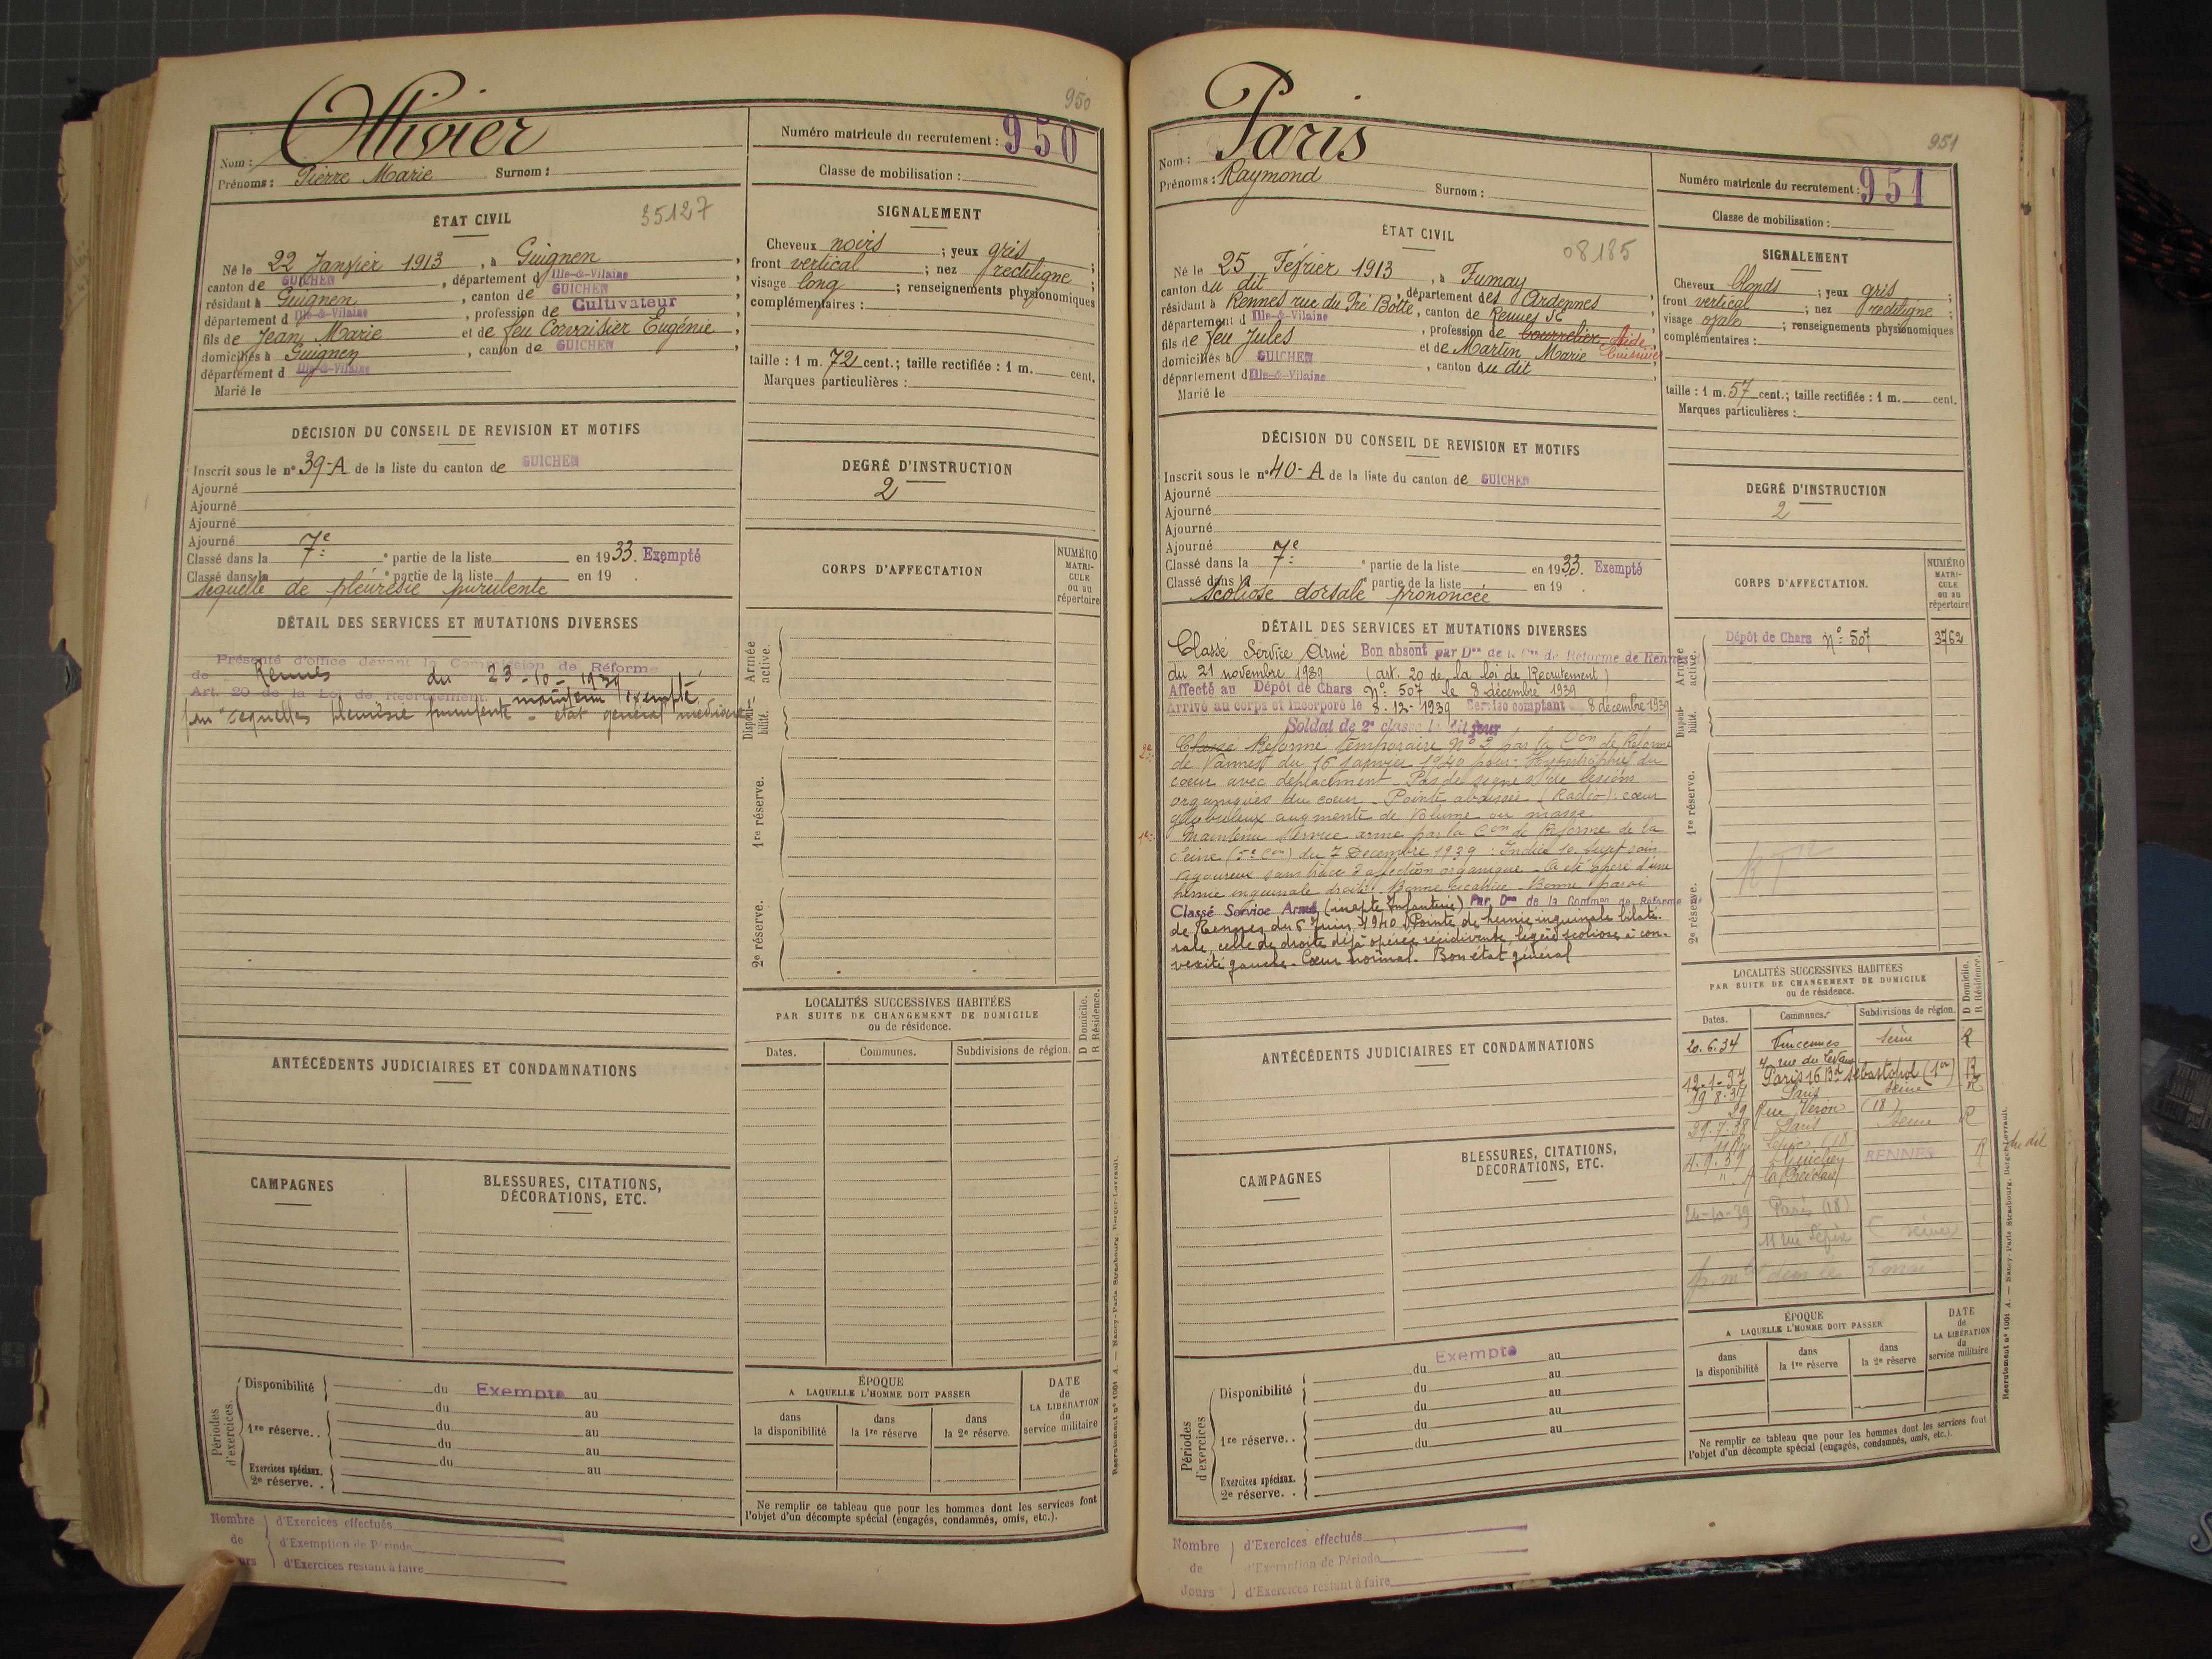 950
Ollivier
Nom :
Prénoms : Pierre Marie Surnom :
Numéro matricule du recrutement : 950
Classe de mobilisation :
ÉTAT CIVIL 35127
Né le 22 Janvier 1913, à Guignen,
canton de GUICHEN, département d Ille-&-Vilaine
résidant à Guignen, canton de GUICHEN
département d Ille-&-Vilaine, profession de Cultivateur
fils de Jean Marie et de feu Corvaisier Eugénie,
domiciliés à Guignen, canton de GUICHEN,
département d Ille-&-Vilaine
Marié le
SIGNALEMENT
Cheveux noirs ; yeux gris ;
front vertical ; nez rectiligne ;
visage long ; renseignements physionomiques
complémentaires :
taille : 1 m. 72 cent.; taille rectifiée : 1 m. cent.
Marques particulières :
DÉCISION DU CONSEIL DE REVISION ET MOTIFS
Inscrit sous le n° 39-A de la liste du canton de GUICHEN
Ajourné
Ajourné
Ajourné
Ajourné
Classé dans la 7e partie de la liste en 1933. Exempté
Classé dans la e partie de la liste en 19 .
séquelle de pleurésie purulente
DEGRÉ D'INSTRUCTION
2
CORPS D'AFFECTATION
NUMÉRO MATRI-CULE ou au répertoire
DÉTAIL DES SERVICES ET MUTATIONS DIVERSES
Présenté d'office devant la Commission de Réforme
de Rennes du 23-10-1939
Art. 20 de la Loi de Recrutement. maintenu exempté
séquelles pleurésie purulente - état général médiocre
Armée active.
Disponi-bilité.
1re réserve.
2e réserve.
LOCALITÉS SUCCESSIVES HABITÉES
PAR SUITE DE CHANGEMENT DE DOMICILE
ou de résidence.
D Domicile.
R Résidence.
Dates. Communes. Subdivisions de région.
ANTÉCÉDENTS JUDICIAIRES ET CONDAMNATIONS
CAMPAGNES
BLESSURES, CITATIONS,
DÉCORATIONS, ETC.
Périodes d'exercices.
Disponibilité du Exempté au
du au
1re réserve.. du au
du au
du au
Exercices spéciaux.
2e réserve. .
ÉPOQUE
A LAQUELLE L'HOMME DOIT PASSER
dans la disponibilité
dans la 1re réserve
dans la 2e réserve.
DATE de LA LIBÉRATION du service militaire
Ne remplir ce tableau que pour les hommes dont les services font
l'objet d'un décompte spécial (engagés, condamnés, omis, etc.).
Recrutement n° 1001 A. — Nancy-Paris-Strasbourg. Berger-Levrault.
Nombre d'Exercices effectués
de d'Exemption de Période
d'Exercices restant à faire
951
Paris
Nom :
Prénoms : Raymond Surnom :
Numéro matricule du recrutement : 951
Classe de mobilisation :
ÉTAT CIVIL 08185
Né le 25 Février 1913, à Fumay,
canton du dit, département des Ardennes
résidant à Rennes rue du Pré Botté, canton de Rennes SE
département d Ille-&-Vilaine, profession de bourrelier Aide
fils de feu Jules et de Martin Marie Cuisinier
domiciliés à GUICHEN, canton du dit
département d Ille-&-Vilaine
Marié le
SIGNALEMENT
Cheveux blonds ; yeux gris ;
front vertical ; nez rectiligne ;
visage ovale ; renseignements physionomiques
complémentaires :
taille : 1 m. 57 cent.; taille rectifiée : 1 m. cent.
Marques particulières :
DÉCISION DU CONSEIL DE REVISION ET MOTIFS
Inscrit sous le n° 40-A de la liste du canton de GUICHEN
Ajourné
Ajourné
Ajourné
Ajourné
Classé dans la 7e partie de la liste en 1933. Exempté
Classé dans la e partie de la liste en 19 .
scoliose dorsale prononcée
DEGRÉ D'INSTRUCTION
2
CORPS D'AFFECTATION.
NUMÉRO MATRI-CULE ou au répertoire
Dépôt de Chars N° 507 3762
DÉTAIL DES SERVICES ET MUTATIONS DIVERSES
Classé Service Armé Bon absent par Don de la Con de Réforme de Rennes
du 21 novembre 1939 (art. 20 de la loi de Recrutement)
Affecté au Dépôt de Chars N° 507 le 8 décembre 1939
Arrivé au corps et incorporé le 8-12-1939 Service comptant 8 décembre 1939
Soldat de 2e classe le dit jour
2e: Classé Réforme temporaire N° 2 par la Con de Réforme
de Vannes du 16 Janvier 1940 pour : Hypertrophie du
coeur avec déplacement - Pas de signes de lésions
organiques du coeur - Pointe abaissée (Radio) : coeur
globuleux augmenté de volume en masse
1e: Maintenu Service armé par la Con de Réforme de la
Seine (5e Con) du 7 Décembre 1939 : Indice 10. Sujet sain
vigoureux sans trace d'affection organique - a été opéré d'une
hernie inguinale droite. Bonne cicatrice - Bonne paroi
Classé Service Armé (inapte Infanterie) Par Don de la Common de Réforme
de Rennes du 6 Juin 1940 Pointe de hernie inguinale bilaté-
rale, celle de droite déjà opérée récidivante, légère scoliose à con-
vexité gauche. Coeur normal. Bon état général
Armée active.
Disponi-bilité.
1re réserve.
2e réserve.
LOCALITÉS SUCCESSIVES HABITÉES
PAR SUITE DE CHANGEMENT DE DOMICILE
ou de résidence.
D Domicile.
R Résidence.
Dates. Communes. Subdivisions de région.
20.6.34 Vincennes Seine R
4 rue du Levant
12-1-37 Paris 16 Bd Sébastopol (1er) R
19 8.37 Paris Seine R
29 Rue Véron (18)
29.7.38 Paris Seine R
11 Rue Lepic (18
4.9.39 Guichen RENNES R du dit
24-10-39 Paris (18)
11 rue Lepic (Seine)
ANTÉCÉDENTS JUDICIAIRES ET CONDAMNATIONS
CAMPAGNES
BLESSURES, CITATIONS,
DÉCORATIONS, ETC.
Périodes d'exercices
du Exempté au
Disponibilité du au
du au
1re réserve.. du au
du au
Exercices spéciaux.
2e réserve. .
ÉPOQUE
A LAQUELLE L'HOMME DOIT PASSER
dans la disponibilité
dans la 1re réserve
dans la 2e réserve
DATE de LA LIBÉRATION du service militaire
Ne remplir ce tableau que pour les hommes dont les services font
l'objet d'un décompte spécial (engagés, condamnés, omis, etc.).
Recrutement n° 1001 A. — Nancy-Paris-Strasbourg. Berger-Levrault.
Nombre d'Exercices effectués
de d'Exemption de Période
Jours d'Exercices restant à faire